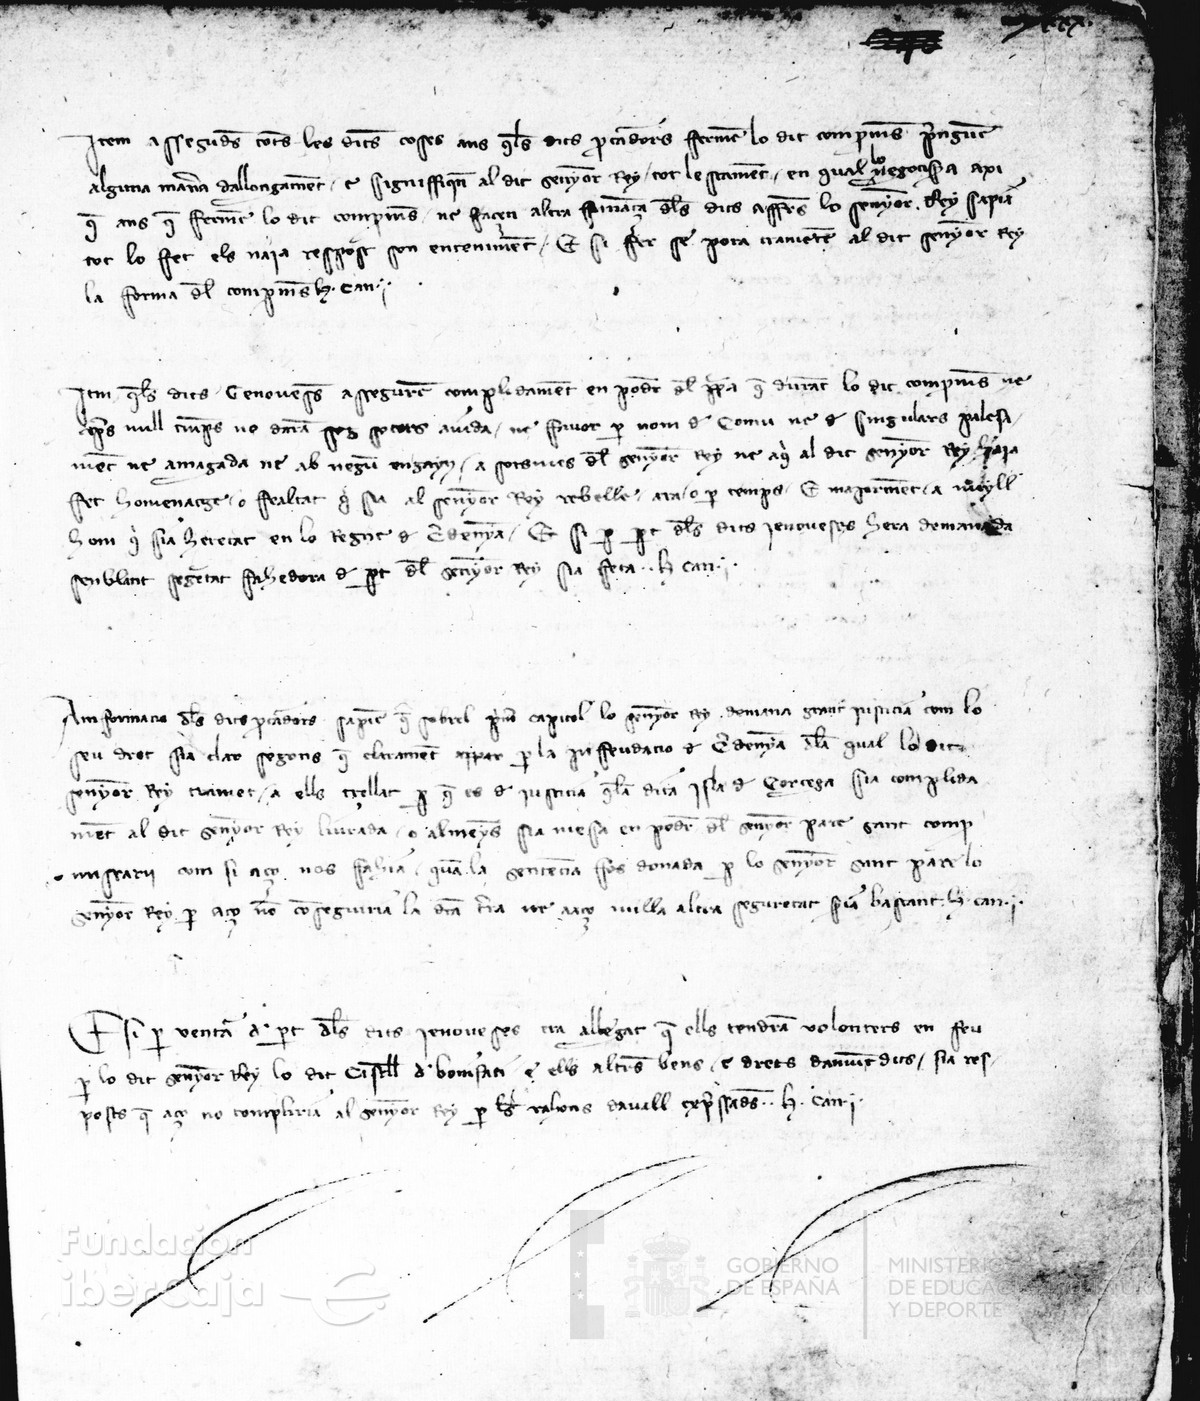 xxx.
Item assegudes totes les dites coses ans quels dits procuradors fermen lo dit compromis prenguen
alguna manera dallongament / e signiffiquen al dit senyor Rey / tot le stament / en qual lo negoci sia axi
que ans que fermen lo dit compromis / ne facen altra fermança dels dits affers lo senyor Rey sapia
tot lo fet els naia respost son enteniment / E si fer se pora trameten al dit senyor Rey
la forma del compromis h. can. j.
Item quels dits Genoveses asseguren complidament en poder del papa que durant lo dit compromis ne
null temps no daran socors aiuda / ne favor per nom de Comu ne de singulars palesa
ment ne amagada ne ab negun engayn / a sotsmes del senyor Rey ne aqui al dit senyor Rey haia
fet homenatge / o ffealtat qui sia al senyor Rey rebelle ara / o per temps / E majorment / a nuyll
hom qui sia heretat en lo Regne de Cerdenya / E si per part dels dits jenoveses hera demanada
senblant seguretat fahedora de part del senyor Rey sia feta .. h can. j.
A informacio dels dits procuradors sapien que sobrel primer capitol lo senyor Rey demana gran justicia com lo
seu dret sia clar segons que clarament appar per la Infeudacio de Cerdenya dela qual lo dit
senyor Rey tramet / a ells trellat per que es de justicia quela dita Isla de Corcega sia complida
ment al dit senyor Rey liurada / o almenys sia mesa en poder del senyor pare sant comp
missarii com si aço nos fahia / quan la sentencia fos donada per lo senyor sant pare lo
senyor Rey per aço no conseguiria la dita terra ne aaço nulla altra seguretat seria bastant. h. can. j.
E si per ventura de part dels dits jenoveses era allegat que ells tendran volenters en feu
per lo dit senyor Rey lo dit Castell de bonifaci e ells altres bens / e drets damunt dits / sia res
post que aço no compliria al senyor Rey per les rahons davall expressades .. h. can. j.
Fundación
iberCaja
GOBIERNO
DE ESPAÑA
MINISTERIO
DE EDUCACIÓN, CULTURA
Y DEPORTE